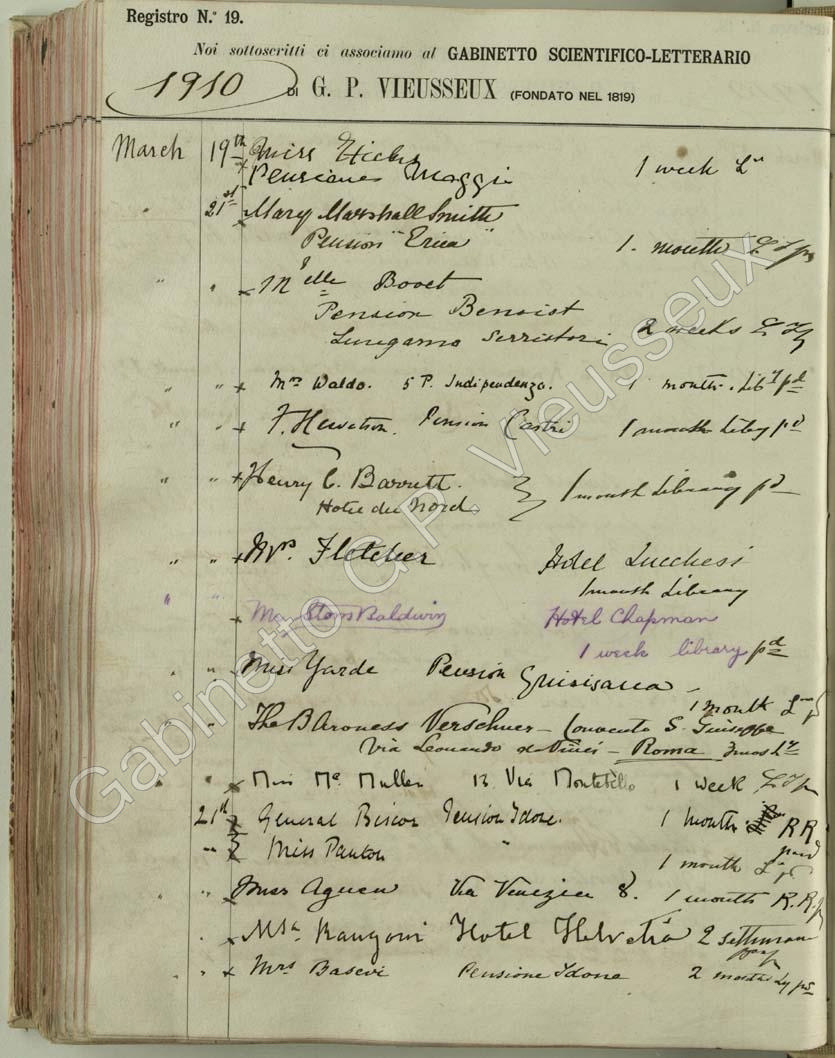 Registro N.º 19.
Noi sottoscritti ci associamo al GABINETTO SCIENTIFICO-LETTERARIO
1910 DI G. P. VIEUSSEUX (FONDATO NEL 1819)
March 19th Miss Hicks
Pensione Maggi 1 week L
" 21st Mary Marshall Smith
Pension "Erica" 1. month
" " Melle Bovet
Pension Benoist
Lungarno Serristori 2 weeks
" " Mrs Waldo. 5 P. Indipendenza. 1 month. Liby pd
" " F. Hewetson. Pension Castri 1 month Liby pd
" " Henry C. Barrett.
Hotel du Nord. 1 month Library pd
" " Mrs. Fletcher Hotel Lucchesi
1 month Library
" " May Stors Baldwin Hotel Chapman
1 week library pd
" " Miss Yarde Pension Quisisana
1 month
" " The Baroness Verschuer - Convento S. Giuseppe
Via Leonardo da Vinci - Roma 3 mos Ly
" " Miss Mc Mullen 13 Via Montebello 1 week
21st General Biscoe Pension Idone. 1 month RR
paid
" Miss Panton " 1 month
" " Miss Agnew Via Venezia 8. 1 month R.R.
" Msa Rangoni Hotel Helvetia 2 settimane
" " Mrs Basevi Pensione Idone 2 months Ly pd
Gabinetto G. P. Vieusseux